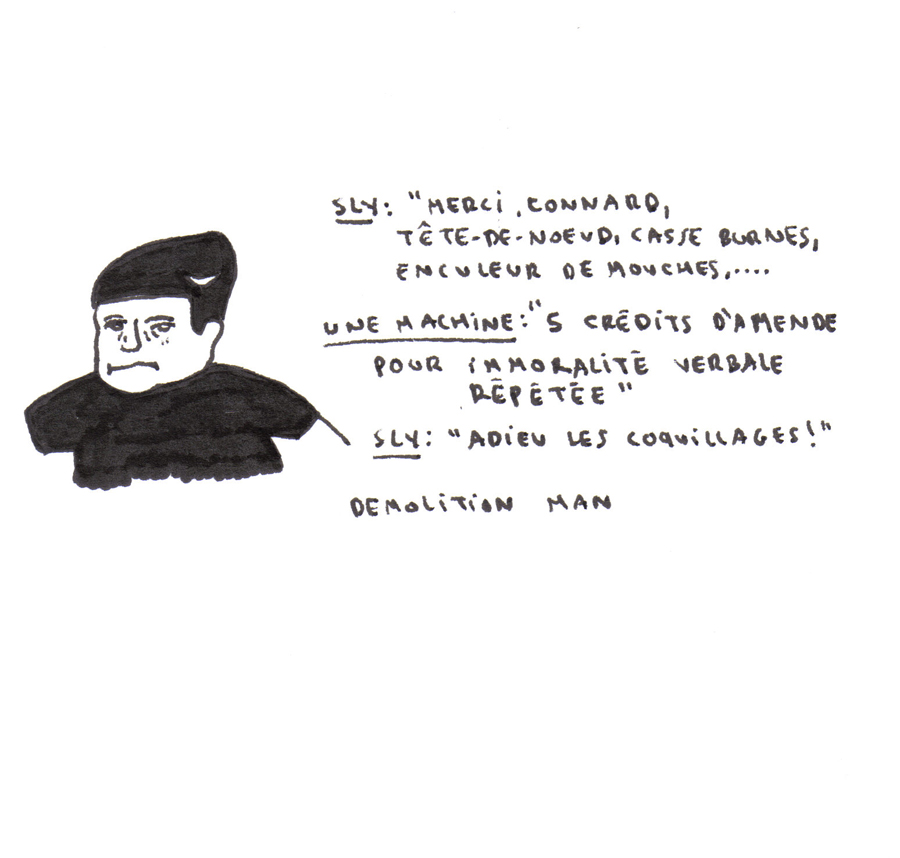 SLY: "MERCI, CONNARD,
TÊTE-DE-NOEUD, CASSE BURNES,
ENCULEUR DE MOUCHES,....
UNE MACHINE: "5 CRÉDITS D'AMENDE
POUR IMMORALITÉ VERBALE
RÉPÉTÉE"
SLY: "ADIEU LES COQUILLAGES!"
DEMOLITION MAN